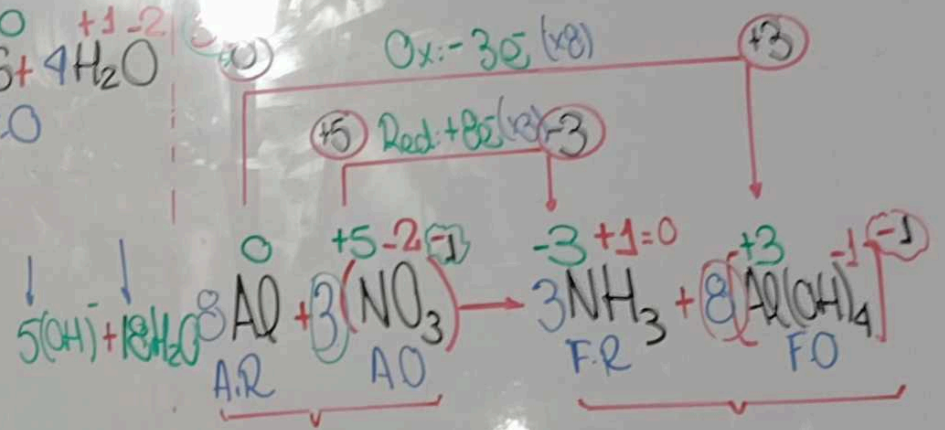 0 +1 -2
+ 4H₂O
0 Ox: -3e⁻ (x8) +3
+5 Red: +8e⁻ (x3) -3
0 +5 -2 -1 -3 +1 =0 +3 -1 -1
5(OH)⁻ + 18H₂O 8Al + 3(NO₃) → 3NH₃ + 8[Al(OH)₄]
A.R AO F.R FO